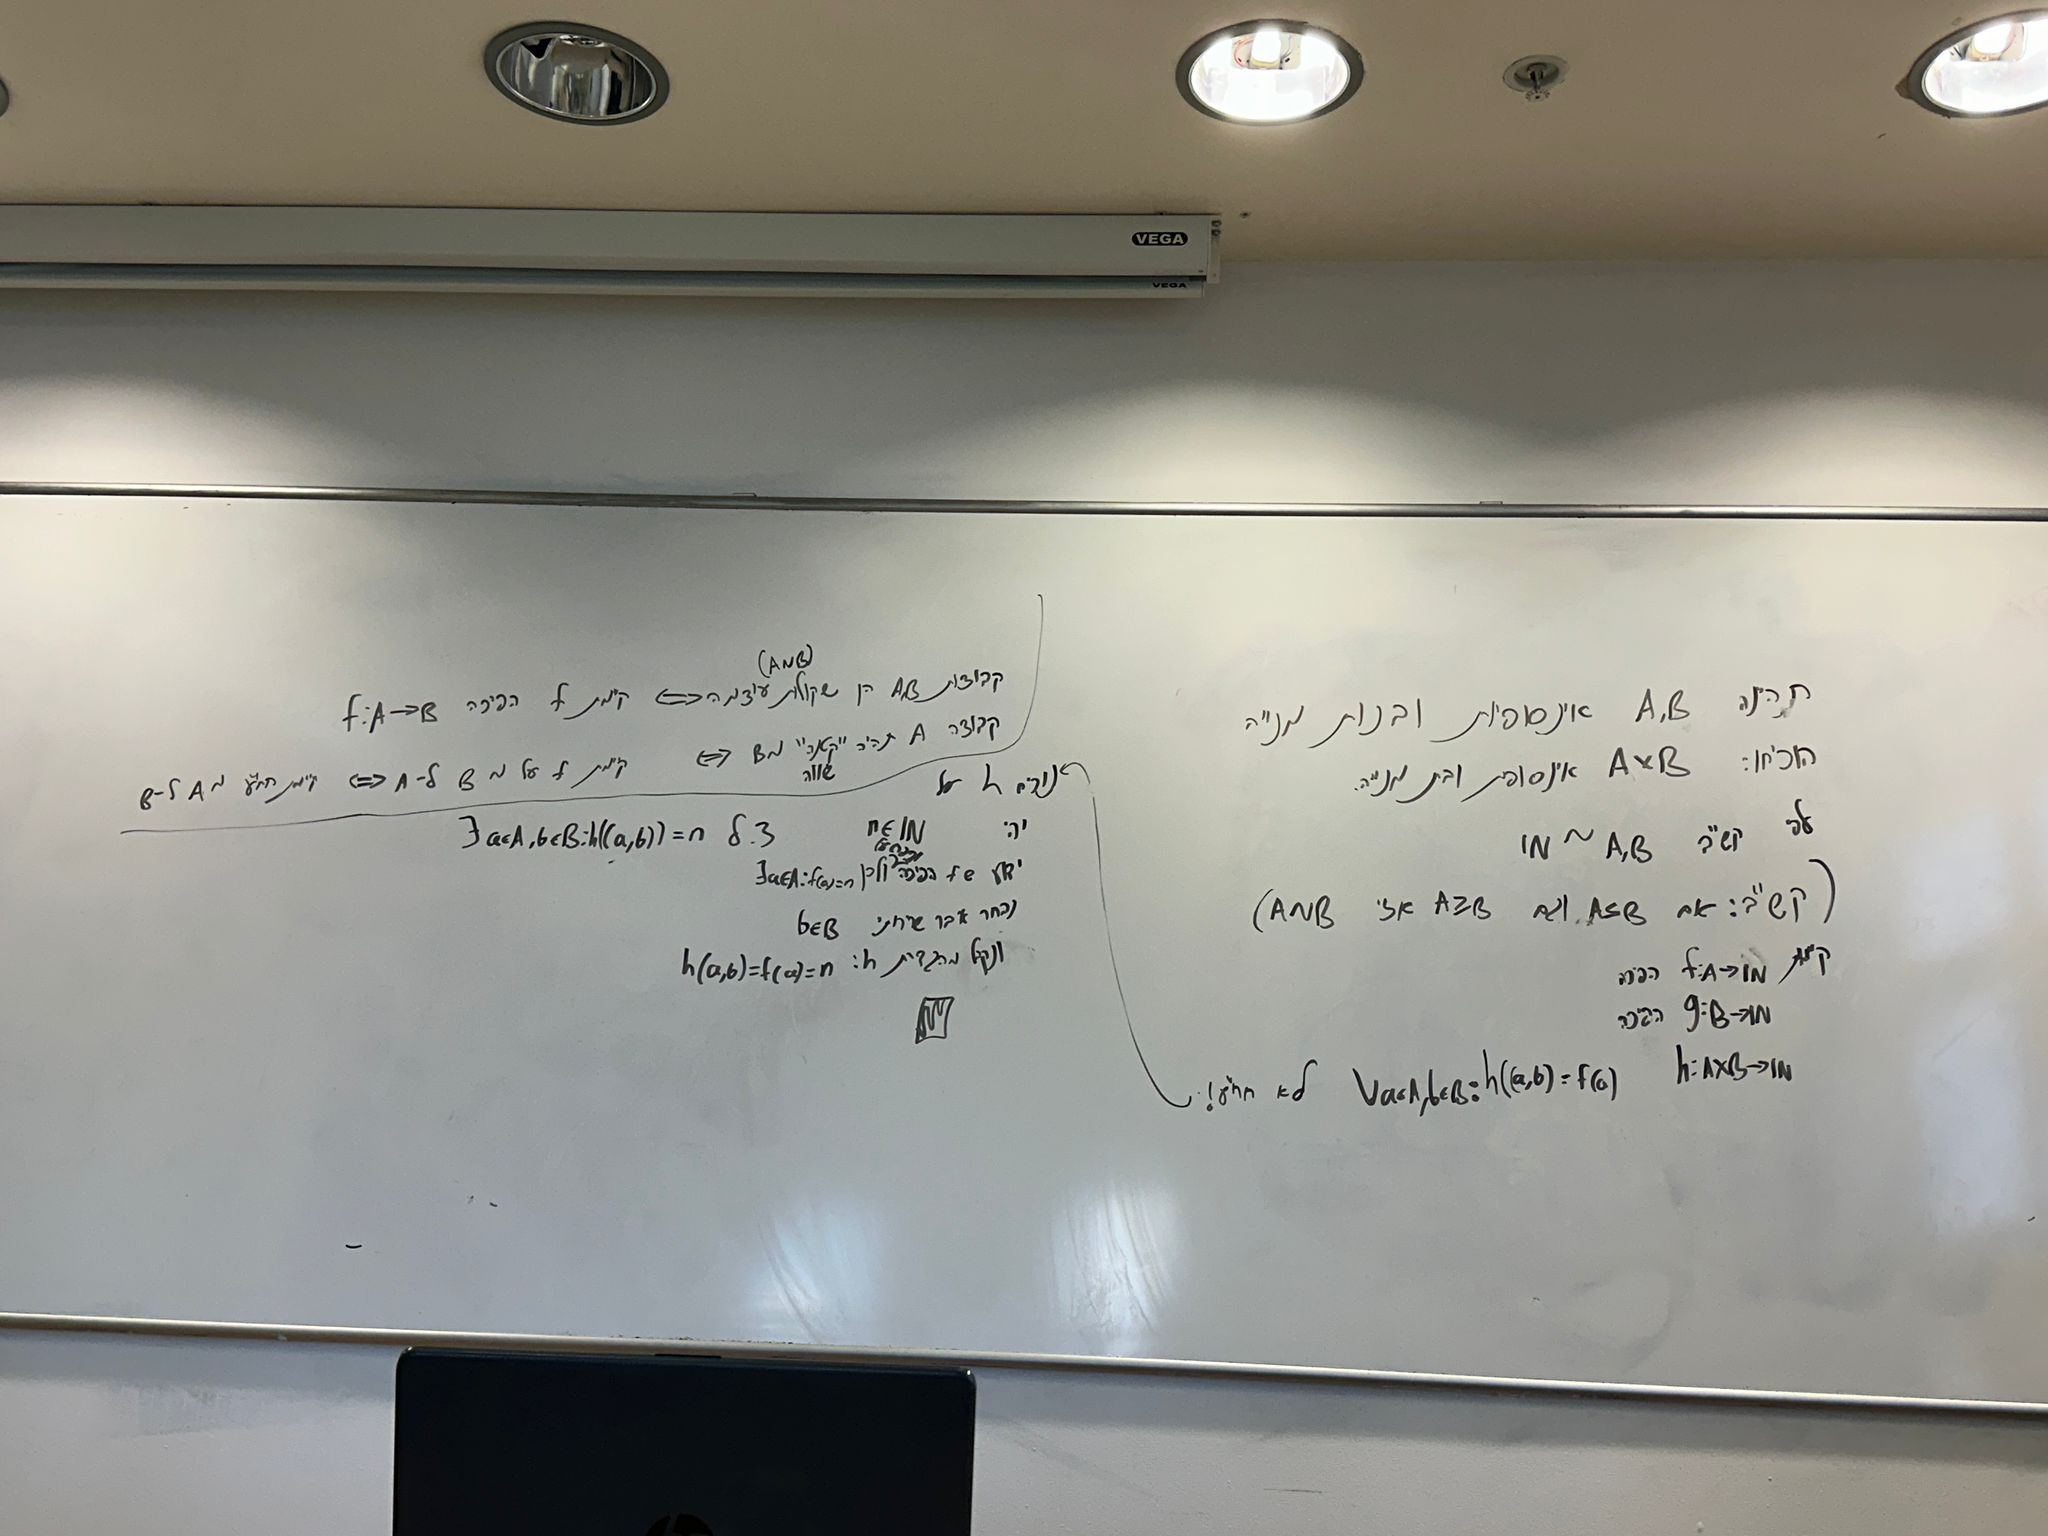 VEGA
VEGA
תהינה A,B אינסופיות ובנות מנייה
הוכיחו: A×B אינסופית ובת מנייה.
עפ"י קש"ב A,B ~ ℕ
(קש"ב: אם A≤B וגם A≥B אזי A~B)
קיימת f:A→ℕ הפיכה
g:B→ℕ הפיכה
h:A×B→ℕ ∀a∈A,b∈B: h((a,b)=f(a) לא חח"ע!
(A~B)
קבוצות A,B הן שקולות עוצמה ⟺ קיימת f הפיכה f:A→B
קבוצה A תהיה "קטנה" מ B ⟺ קיימת f על מ B ל-A ⟺ קיימת חח"ע מ A ל-B
שווה
נוכיח h על
יהי n∈ℕ צ.ל ∃a∈A,b∈B: h((a,b))=n
ידוע ש f הפיכה ולכן ∃a∈A: f(a)=n
נבחר איבר שרירותי b∈B
ונקבל מהגדרת h: h(a,b)=f(a)=n